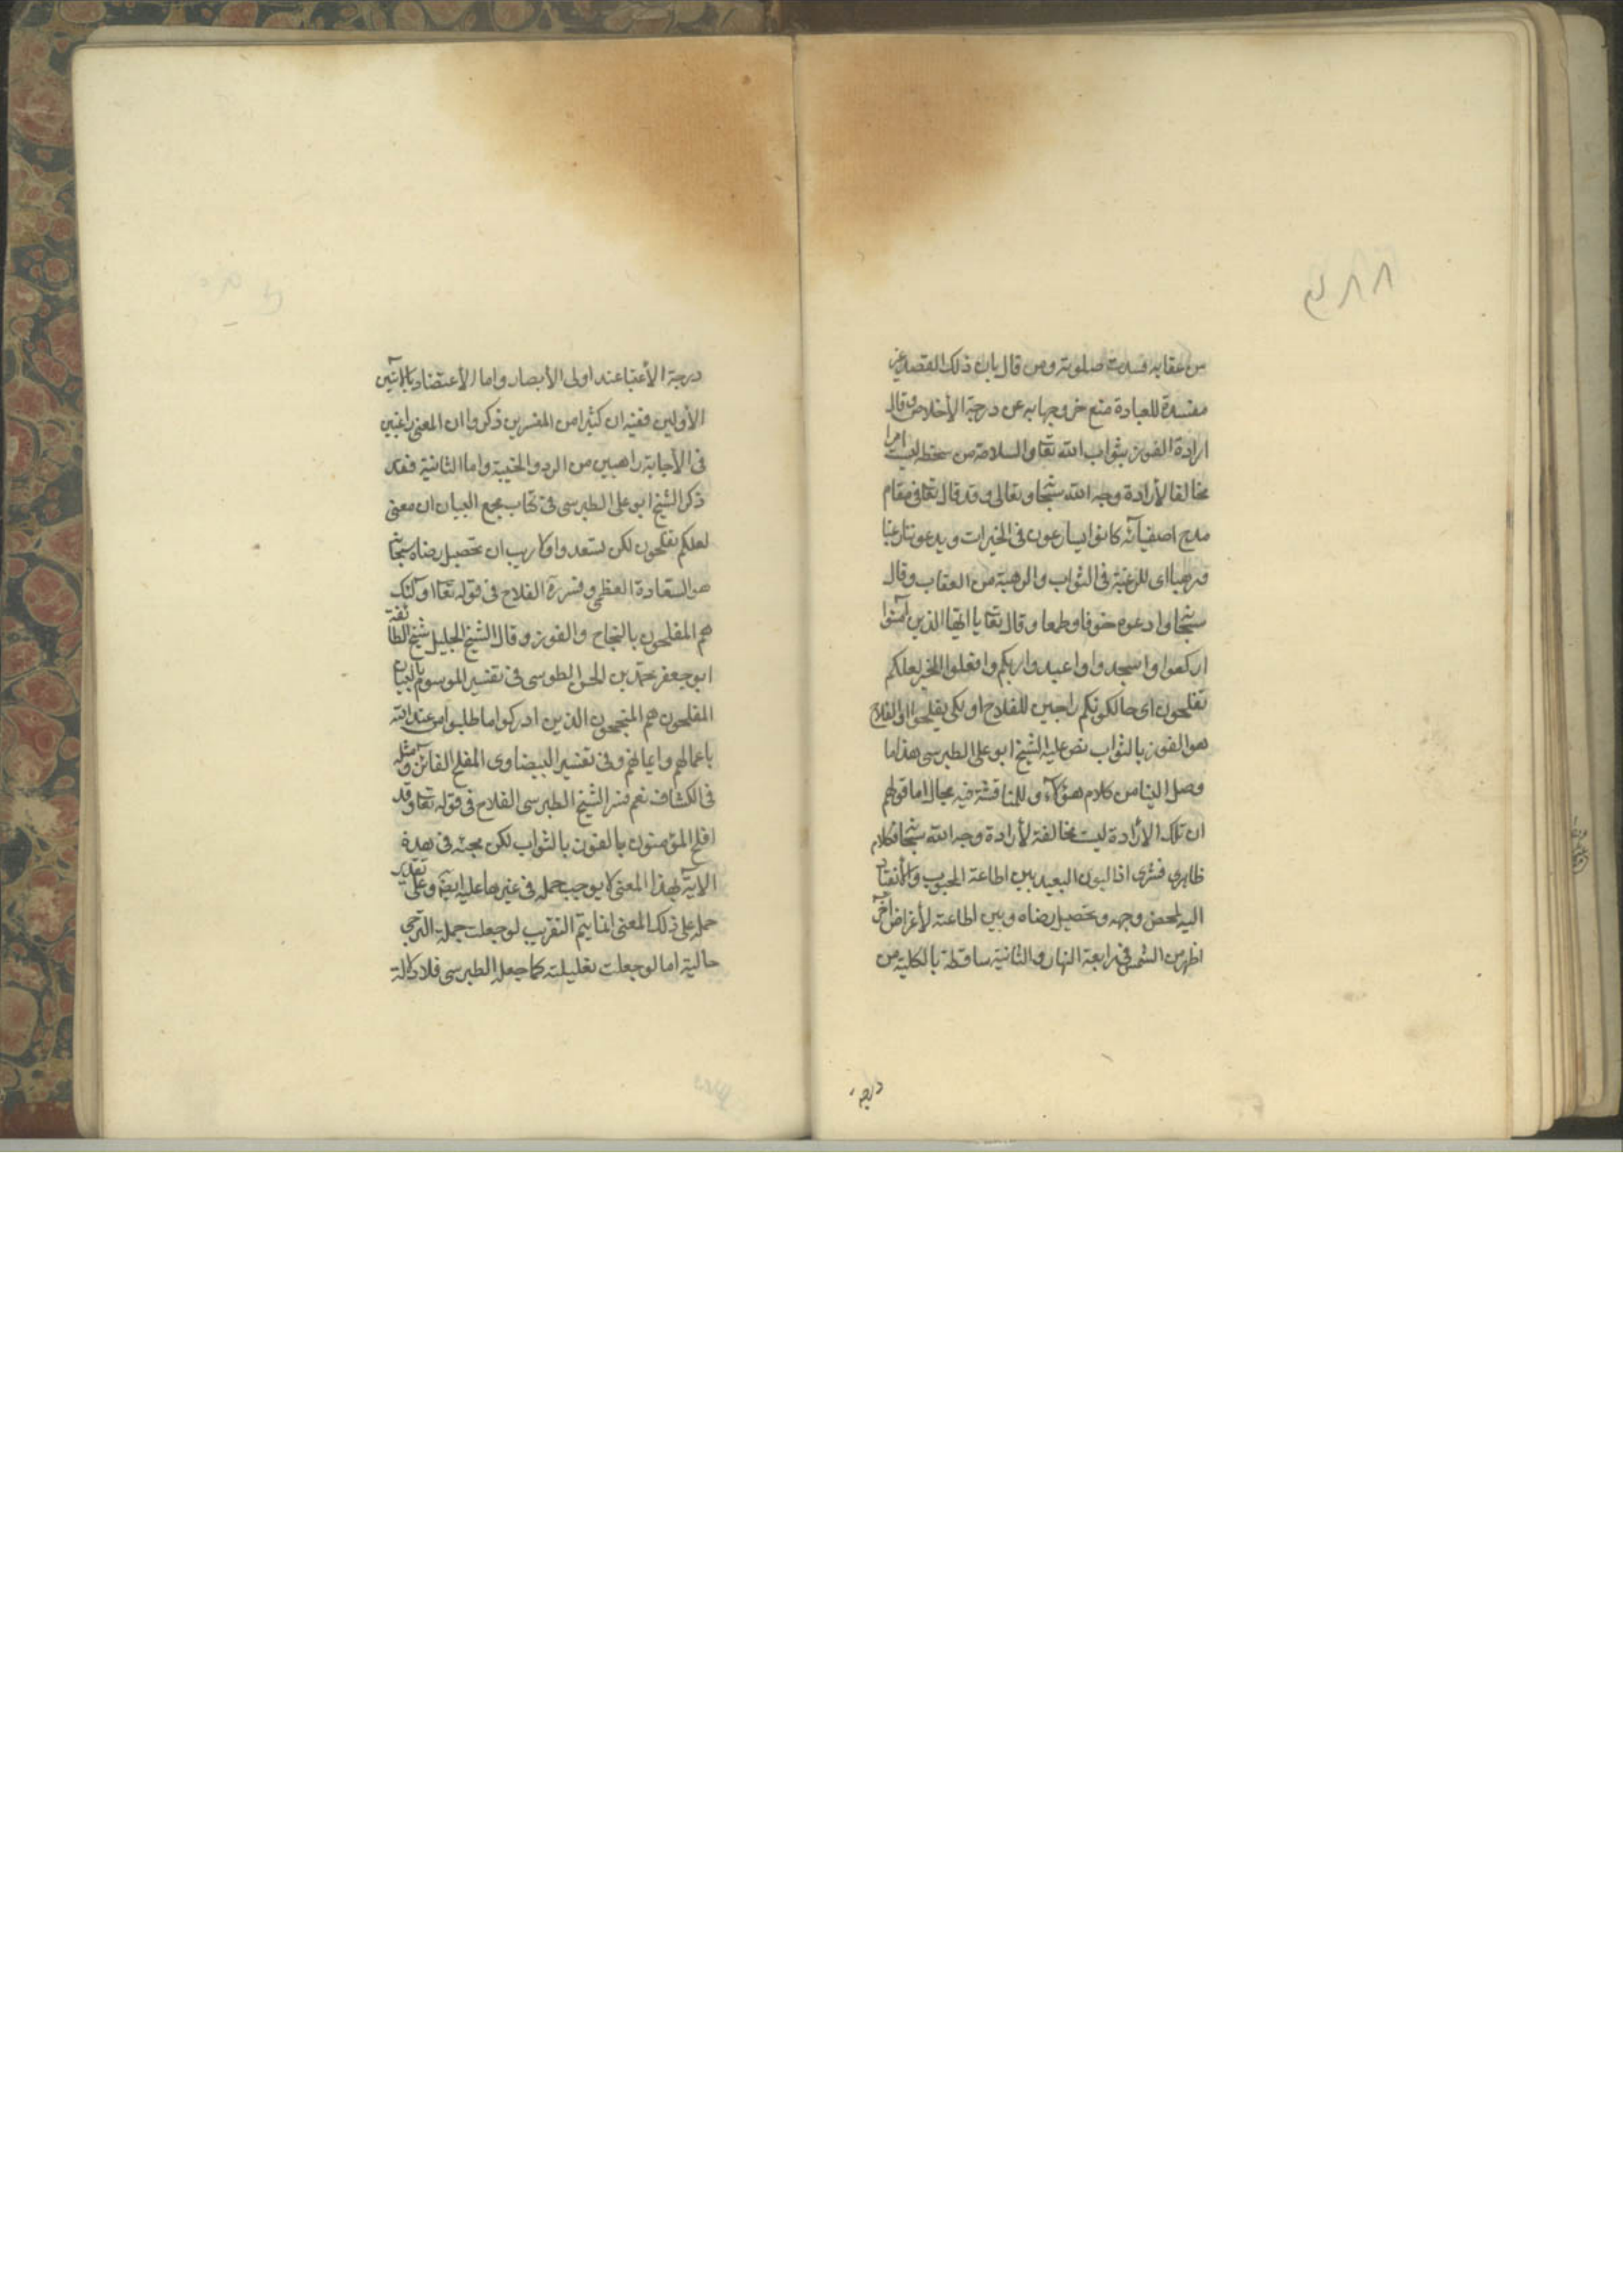 من عقابه فسدت صلوته ومن قال بان ذلك القصد غير
مفسدة للعبادة منع خروجها به عن درجة الأخلاص وقال
ارادة الفوز بثواب الله تعا والسلامة من سخطه ليست امرا
مخالفا لأرادة وجه الله سبحا وتعالى وقد قال تعا فى مقام
مدح اصفيائه كانوا يسارعون فى الخيرات ويدعوننا رغبا
ورهبا اى للرغبة فى الثواب والرهبة من العقاب وقال
سبحا وادعوه خوفا وطمعا وقال تعا يا ايها الذين آمنوا
اركعوا واسجدوا واعبدوا ربكم وافعلوا الخير لعلكم
تفلحون اى حالكونكم راجين للفلاح او لكى تفلحوا والفلاح
هو الفوز بالثواب نص عليه الشيخ ابو على الطبرسى هذا ما
وصل الينا من كلام هؤلاء وللمناقشة فيه مجال اما قولهم
ان تلك الأرادة ليست مخالفة لأرادة وجه الله سبحا فكلام
ظاهرى قشرى اذ البون البعيد بين اطاعة المحبوب والأنقياد
اليه لمحض وجهه وتحصيل رضاه وبين اطاعته لأغراض أخر
اظهر من الشمس فى رابعة النهار والثانية ساقطة بالكلية من
درجة
درجة الأعتبا عند اولى الأبصار واما الأعتضاد بالآيتين
الأوليين ففيه ان كثيرا من المفسرين ذكروا ان المعنى راغبين
فى الأجابة راهبين من الرد والخيبة واما الثانية فقد
ذكر الشيخ ابو على الطبرسى فى كتاب مجمع البيان ان معنى
لعلكم تفلحون لكى تسعدوا ولا ريب ان تحصيل رضاه سبحا
هو السعادة العظمى وفسر رة الفلاح فى قوله تعا اولئك
هم المفلحون بالنجاح والفوز وقال الشيخ الجليل شيخ الطائفة
ابو جعفر محمد بن الحسن الطوسى فى تفسيره الموسوم بالتبيان
المفلحون هم المنجحون الذين ادركوا ما طلبوا من عند الله
باعمالهم وايمانهم وفى تفسير البيضاوى المفلح الفائز ومثله
فى الكشاف نعم فسر الشيخ الطبرسى الفلاح فى قوله تعا قد
افلح المؤمنون بالفوز بالثواب لكن مجيئه فى هذه
الآية بهذا المعنى لا يوجب حمله فى غيرها عليه ايضا وعلى تقدير
حمله على ذلك المعنى انما يتم التقريب لو جعلت جملة الترجى
حالية اما لو جعلت تعليلية كما جعله الطبرسى فلا دلالة